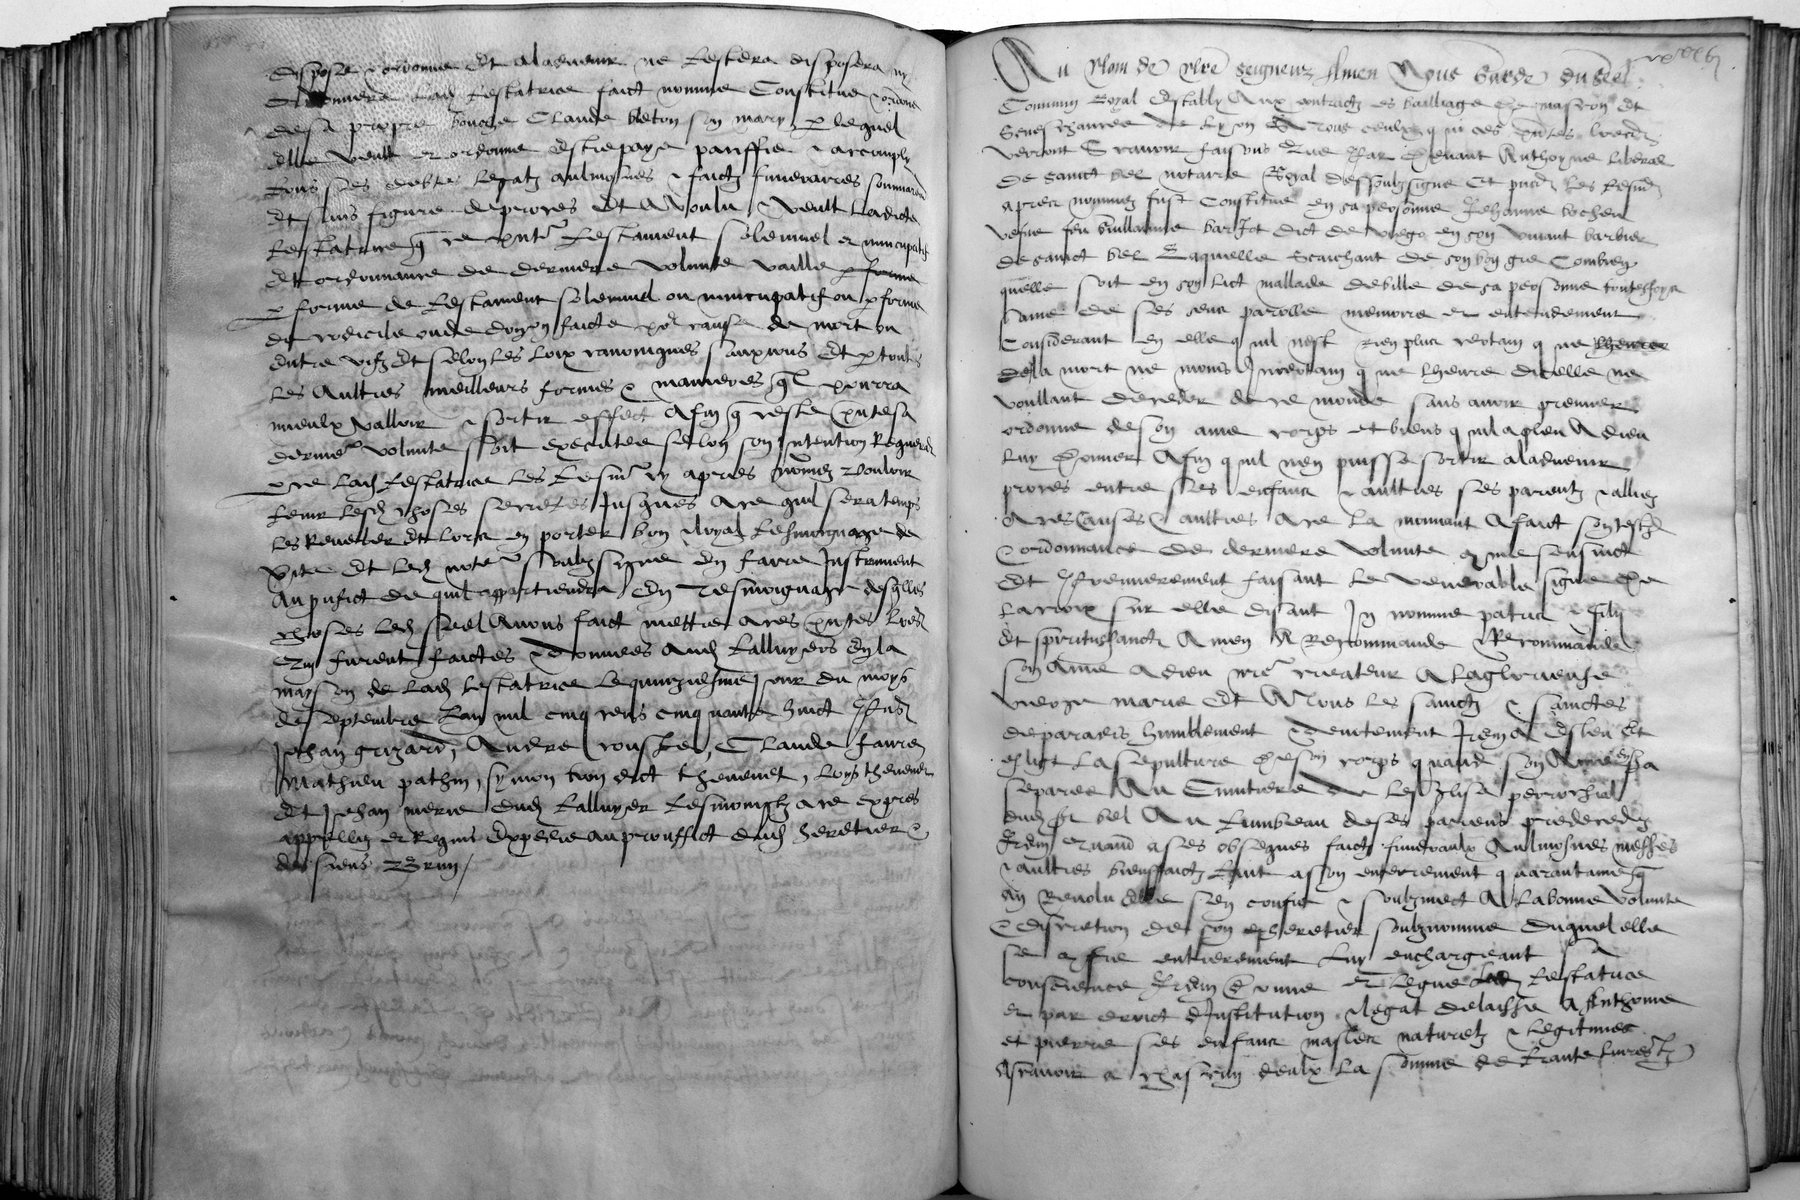 dispose & ordonne Et aladvenir ne testera disposera ny
ordonnera lad testatrice faict nomme Constitue & ordonne
de sa propre bouche Claude breton son mary p lequel
elle veult et ordonne estre paye paciffie & acomply
tous ses debtes legatz aulmosnes & faictz funeraires
Et sans figure de proces Et A voulu & veult ladicte
testatrice q ce pnt testament solennel et nuncupatif
Et ordonnance de derniere volunte vaille
p forme de testament solennel ou nuncupatif ou p forme
de codicile ou de donon faicte por cause de mort ou
entre vifz Et selon les loix canoniques sanxions Et p toutes
les Aultres meilleurs formes & manieres q pourra
mieulx valloir & sortir effect Afin q ceste pnte sa
derniere volunte soit executee selon son Intention Requerant
lad testatrice les tesm cy apres nommez vouloir
tenir lesd choses secretes Jusques a ce quil sera temps
les Reveler Et lors en porter bon & loyal tesmoignage de
verite Et led note soubzsigne En faire Instrument
Au pufict de quil appartiendra En Tesmoignage desqlles
choses led seel Avons faict mettre A ces pntes lres
Qui furent faictes & donnees Aud talluyers En la
mayson de lad testatrice le quinziesme Jour du moys
de septembre Lan mil cinq cens cinquante huict Pns
Jehan grizard, Andre rouste, Claude faure
Mathieu pathin, symon bon dict thevenet, loys thevenet
Et Jehan merie dud talluyer tesmoingtz a ce expres
appellez et Requis Expedie au prouffict dud heretier &
des siens Brun
Au Nom de nre seigneur Amen Nous Garde du seel
Commun Royal Estably Aux contractz es bailliage de mascon Et
Seneschaucee de Lyon A tous ceulx qui ces pntes lres
verront Scavoir faisons Que Par Devant Anthoyne liberal
de sainct bel notaire Royal dessoubzsigne Et pns les tesm
apres nommez fust Constitue en sa personne Jehanne bochu
vefve feu Guillaume barjot dict de en son vivant barbier
de sainct bel Laquelle Scaichant de son bon gre Combien
quelle soit en son lict mallade debille de sa personne touteffoys
saine de ses sens parolle memoire et entendement
Considerant en elle quil nest rien plus certain que
de la mort ne moins Incertain que lheure dicelle ne
voullant deceder de ce monde sans avoir premier
ordonne de son ame corps et biens quil a pleu A dieu
luy donner Afin quil nen puisse sortir aladvenir
proces entre ses enfans & aultres ses parentz & alliez
A ces Causes & aultres A ce la mouvant A faict son test
& ordonnance de derniere volunte q me sensuict
Et Premierement faisant le venerable signe de
la croix sur elle disant In nomine patris & filij
Et spiritus sancti Amen A Recommande & Recommande
son Ame A dieu nre createur A la glorieuse
vierge marie Et A tous les sainctz & sainctes
de paradis humblement & devotement Item A Esleu Et
eslist la sepulture de son corps quand son Ame en sera
separee Au Cimitiere de Lesglise perrochial
dud st bel Au tumbeau de ses parens predecedez
Item quand a ses obseques faictz funeraulx Aulmosnes messes
& aultres bienffaictz tant a son enterrement quarantaine q
an Revolu elle sen confie & soubzmect A la bonne volunte
& discretion de son heretier soubznomme Duquel elle
se confie entierement luy enchargeant sa
conscience Item donne et legue lad testatrice
et par droict dInstitution & legat delaisse A Anthoine
et pierre ses enfans masles naturelz & legitimes
Ascavoir a chascun deulx la somme de trante livres tz